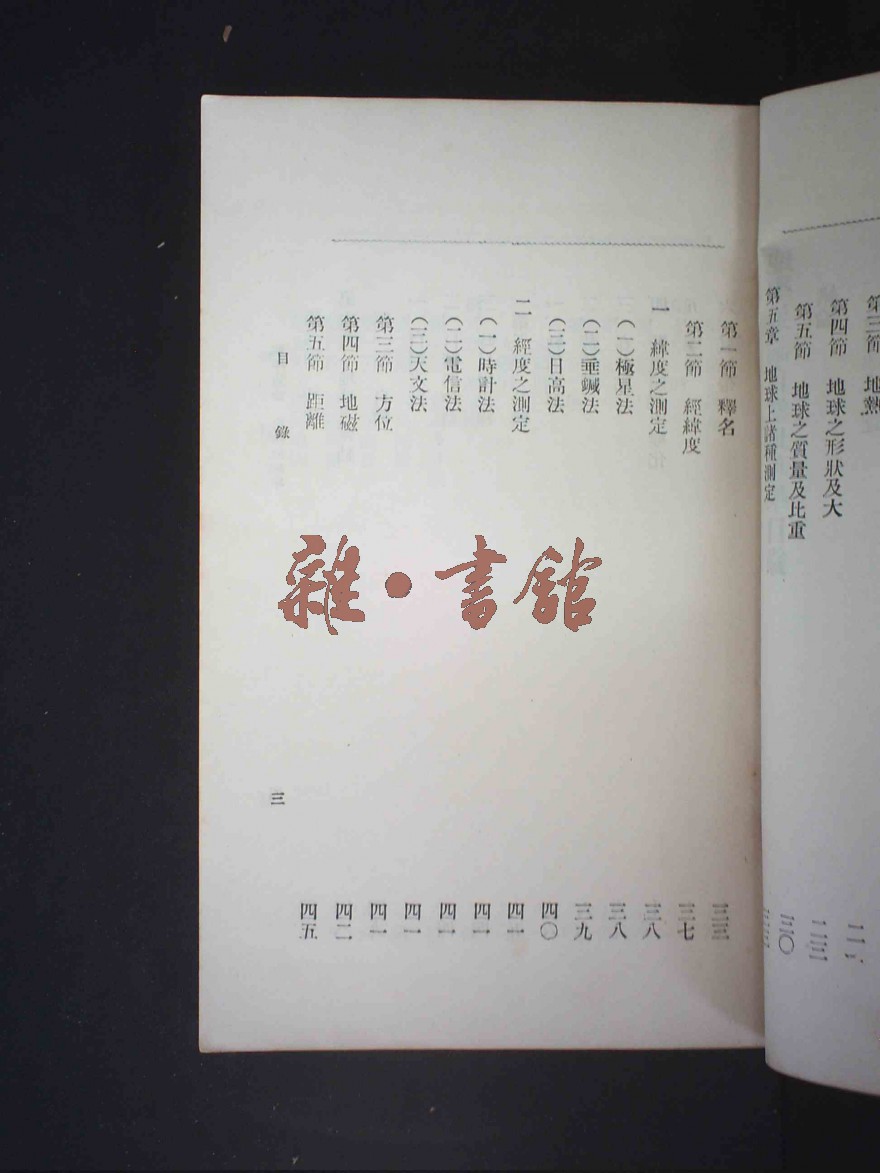 第三節 地熱
第四節 地球之形狀及大
第五節 地球之質量及比重 三〇
第五章 地球上諸種測定
第一節 釋名 三三
第二節 經緯度 三七
一 緯度之測定 三八
(一)極星法 三八
(二)垂鍼法 三九
(三)日高法 四〇
二 經度之測定 四一
(一)時計法 四一
(二)電信法 四一
(三)天文法 四一
第三節 方位 四一
第四節 地磁 四二
第五節 距離 四五
目錄 三
雜·書館